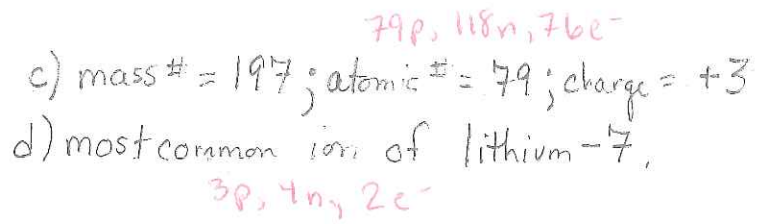 79p, 118n, 76e⁻
c) mass # = 197; atomic # = 79; charge = +3
d) most common ion of lithium-7.
3p, 4n, 2e⁻